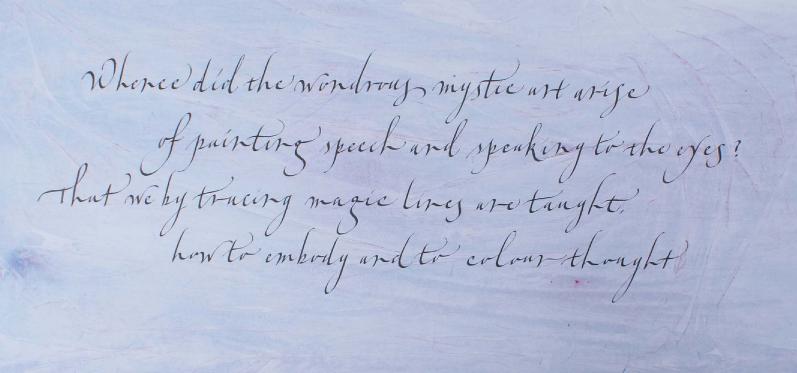 Whence did the wondrous mystic art arise
of painting speech and speaking to the eyes?
That we by tracing magic lines are taught,
how to embody and to colour thought